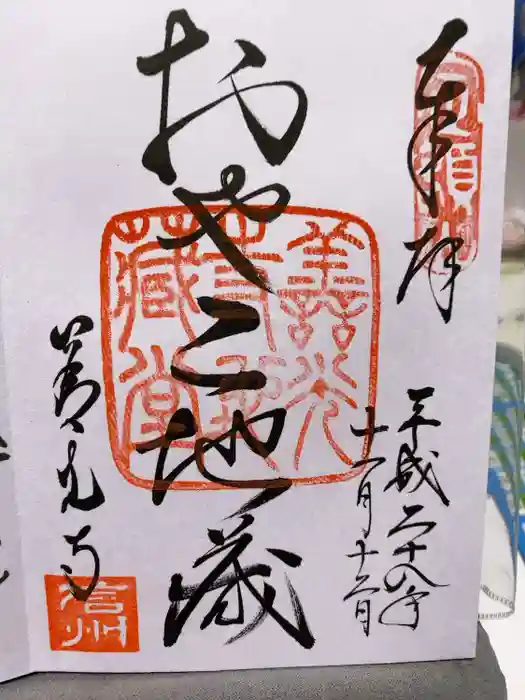 奉拝
平成二十八年
十一月十二日
おやこ地蔵
善光
地蔵堂
善光寺
信州